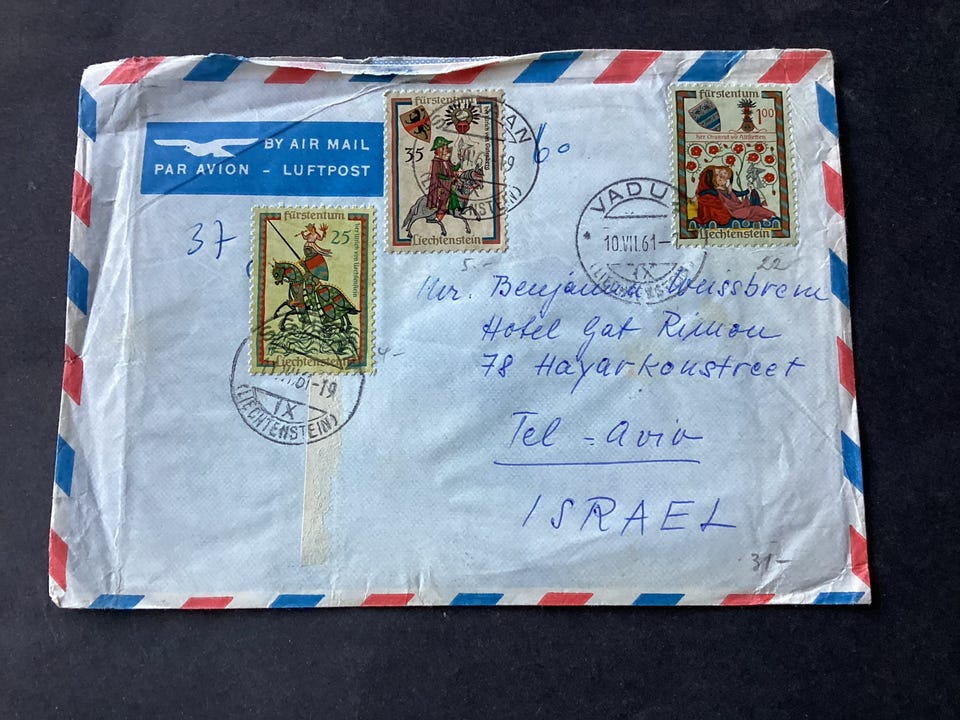 BY AIR MAIL
PAR AVION - LUFTPOST
37
Fürstentum
25
heinrich von liechtenstein
Liechtenstein
11.VII.61-19
IX
(LIECHTENSTEIN)
Fürstentum
35
Liechtenstein
60
5.-
Fürstentum
1.00
Liechtenstein
VADUZ
10.VII.61-
IX
(LIECHTENSTEIN)
22
Mr. Benjamin Weissbrem
Hotel Gat Rimon
78 Hayarkonstreet
Tel-Aviv
ISRAEL
4-
31-